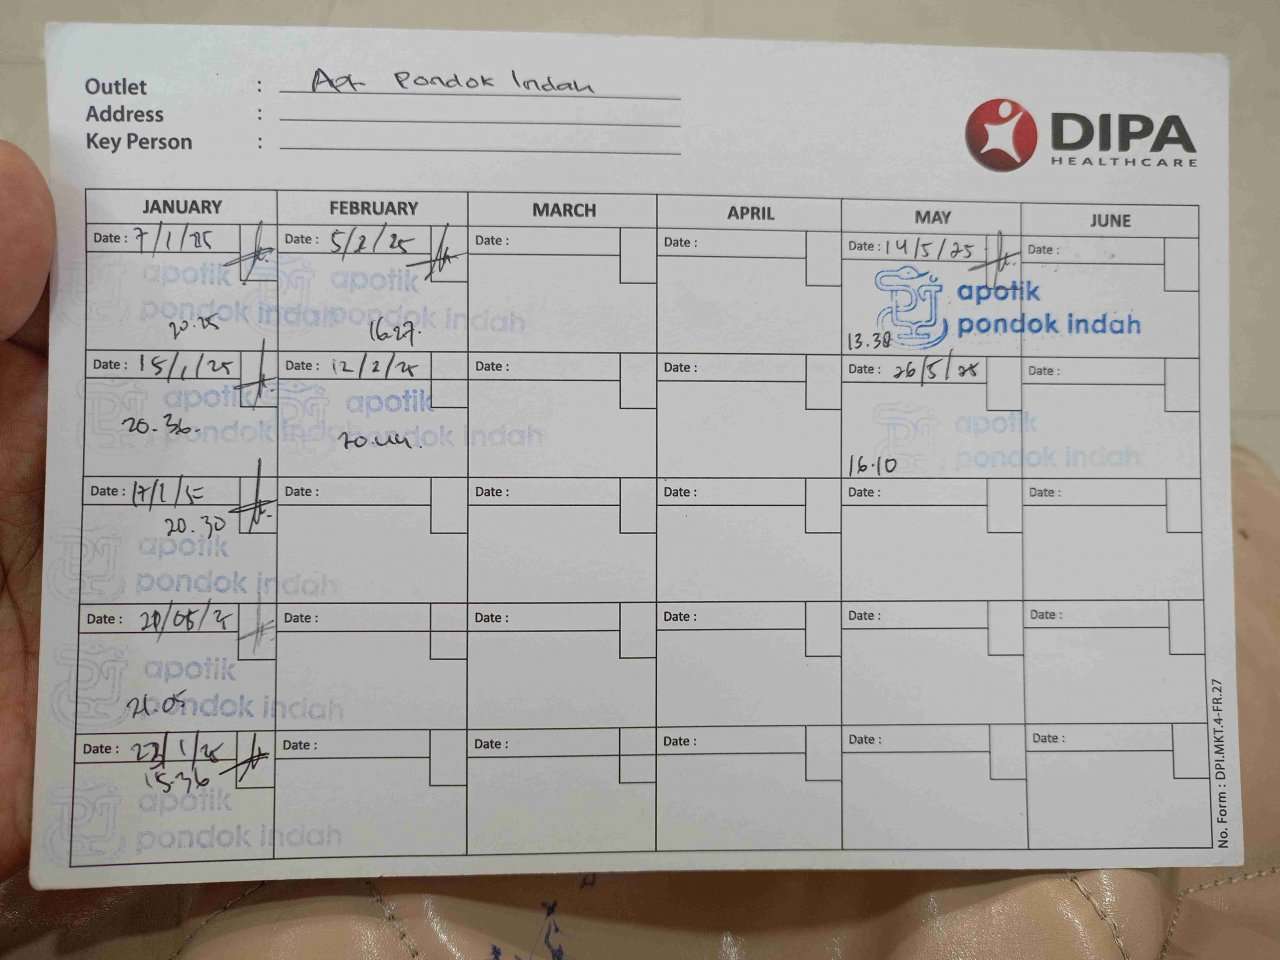 Outlet : Apt Pondok Indah
Address :
Key Person :
DIPA
HEALTHCARE
JANUARY FEBRUARY MARCH APRIL MAY JUNE
Date : 7/1/25 Date : 5/2/25 Date : Date : Date : 14/5/25 Date :
apotik apotik apotik
pondok indah pondok indah pondok indah
20.25 16.27. 13.38
Date : 15/1/25 Date : 12/2/25 Date : Date : Date : 26/5/25 Date :
apotik apotik apotik
20.36. pondok indah pondok indah pondok indah
20.44. 16.10
Date : 17/1/25 Date : Date : Date : Date : Date :
20.30
apotik
pondok indah
Date : Date : Date : Date : Date : Date :
apotik
21.05 pondok indah
Date : 23/1/25 Date : Date : Date : Date : Date :
15.36
apotik
pondok indah
No. Form : DPI.MKT.4-FR.27